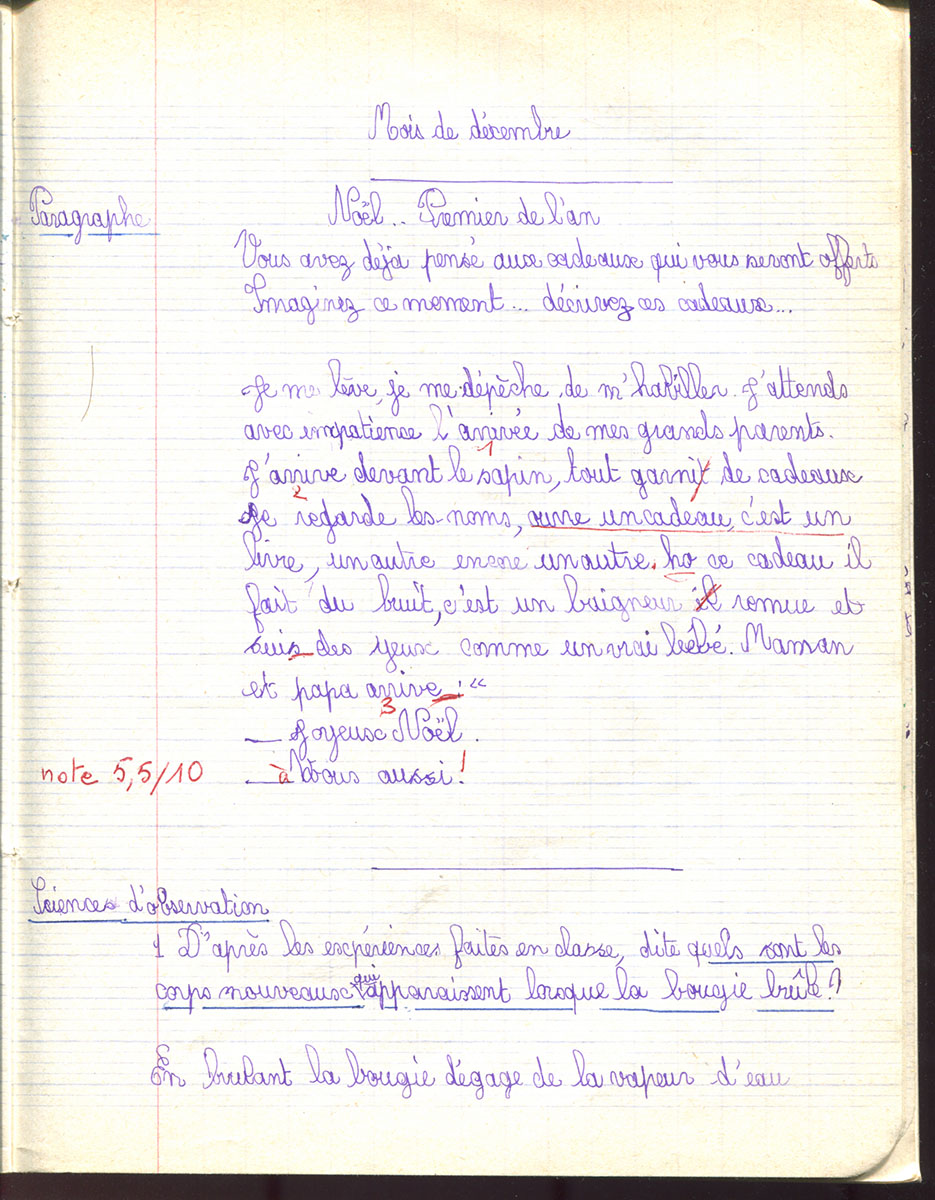 Mois de décembre
Paragraphe
Noël.. Premier de l'an
Vous avez déjà pensé aux cadeaux qui vous seront offerts
Imaginez ce moment... décrivez ces cadeaux...
Je me lève, je me dépêche, de m'habiller. J'attends
avec impatience l'arrivée de mes grands parents.
1
J'arrive devant le sapin, tout garnit de cadeaux
2
Je regarde les noms, ouvre un cadeau, c'est un
livre, un autre encore un autre. ho ce cadeau il
fait du bruit, c'est un baigneur il remue et
suis des yeux comme un vrai bébé. Maman
et papa arrive :"
3
— Joyeux Noël.
note 5,5/10
— à Vous aussi!
Sciences d'observation
1 D'après les expériences faites en classe, dite quels sont les
corps nouveaux qui apparaissent lorsque la bougie brûle?
En brulant la bougie dégage de la vapeur d'eau